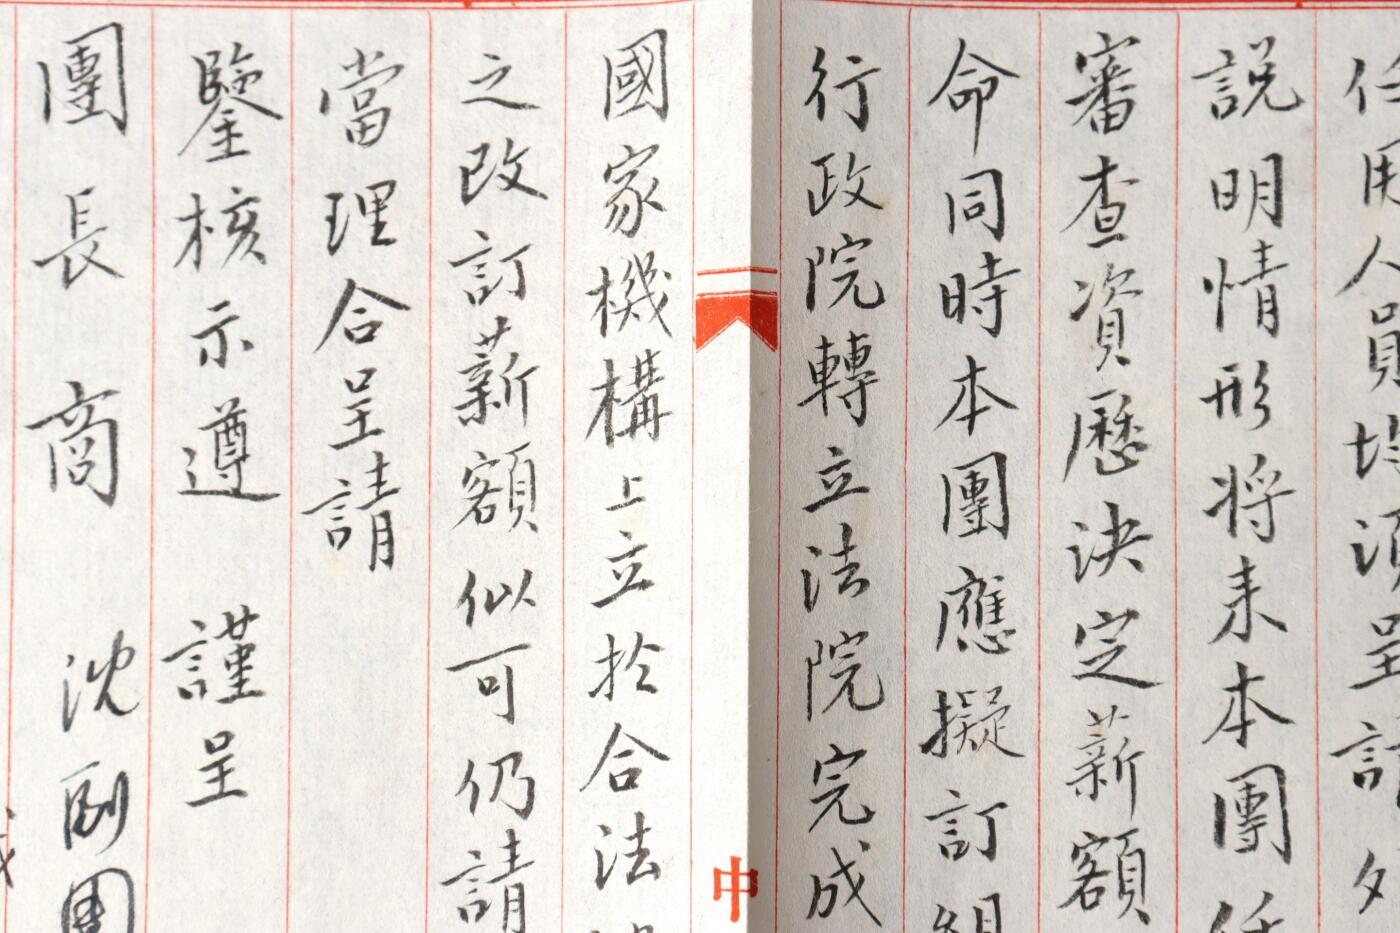 任用人員均須呈請
說明情形將來本團任
審查資歷決定薪額
命同時本團應擬訂組
行政院轉立法院完成
中
國家機構上立於合法
之改訂薪額似可仍請
當理合呈請
鑒核示遵 謹呈
團長商 沈副團